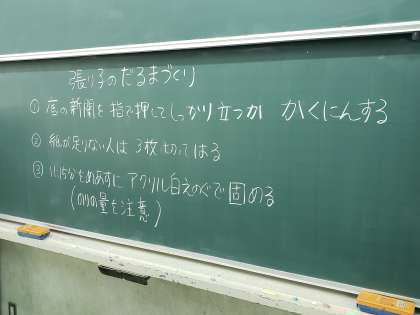 張り子のだるまづくり
① 底の新聞を指で押してしっかり立つか かくにんする
② 紙が足りない人は 3枚切ってはる
③ 11:15分をめあすに アクリル白えのぐで固める
(のりの量を注意)